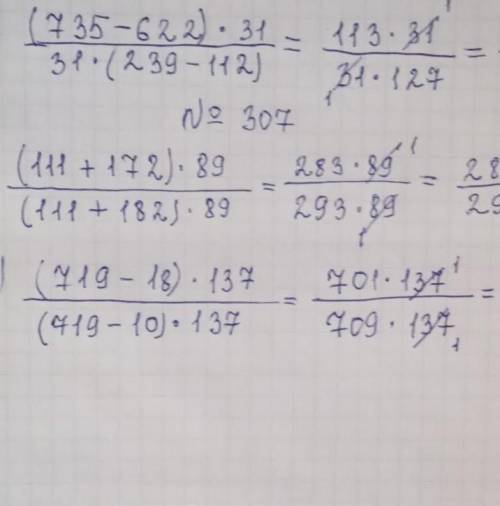 (735-622)·31 / 31·(239-112) = 113·31 / 31·127 =
№ 307
(111+172)·89 / (111+182)·89 = 283·89 / 293·89 = 28 / 29
) (719-18)·137 / (719-10)·137 = 701·137 / 709·137 =